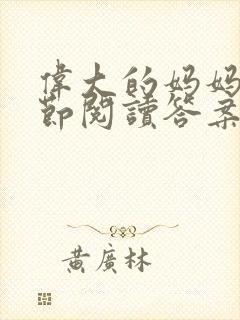 偉大的媽媽
節閱讀答案
黃廣林